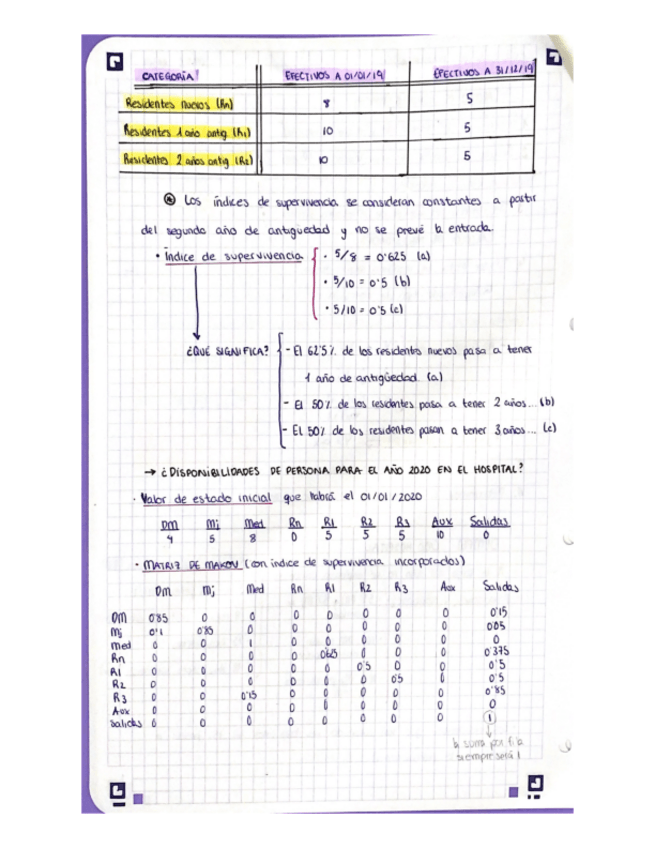 CATEGORÍA! EFECTIVOS A 01/01/19 EFECTIVOS A 31/12/19
Residentes nuevos (Rn) 8 5
Residentes 1 año antig (R1) 10 5
Residentes 2 años antig (R2) 10 5
Los índices de supervivencia se consideran constantes a partir
del segundo año de antigüedad y no se prevé la entrada.
• Índice de supervivencia { • 5/8 = 0'625 (a)
• 5/10 = 0'5 (b)
• 5/10 = 0'5 (c)
¿QUÉ SIGNIFICA? { - El 62'5% de los residentes nuevos pasa a tener
1 año de antigüedad (a)
- El 50% de los residentes pasa a tener 2 años... (b)
- El 50% de los residentes pasan a tener 3 años... (c)
→ ¿DISPONIBILIDADES DE PERSONA PARA EL AÑO 2020 EN EL HOSPITAL?
• Valor de estado inicial que habrá el 01/01/2020
DM Mj Med Rn R1 R2 R3 Aux Salidas
4 5 8 0 5 5 5 10 0
• MATRIZ DE MAKOV (con índice de supervivencia incorporados)
DM Mj Med Rn R1 R2 R3 Aux Salidas
DM 0'85 0 0 0 0 0 0 0 0'15
Mj 0'1 0'85 0 0 0 0 0 0 0'05
Med 0 0 1 0 0 0 0 0 0
Rn 0 0 0 0 0'625 0 0 0 0'375
R1 0 0 0 0 0 0'5 0 0 0'5
R2 0 0 0 0 0 0 0'5 0 0'5
R3 0 0 0'15 0 0 0 0 0 0'85
Aux 0 0 0 0 0 0 0 0 0
Salidas 0 0 0 0 0 0 0 0 1
la suma por fila
siempre será 1